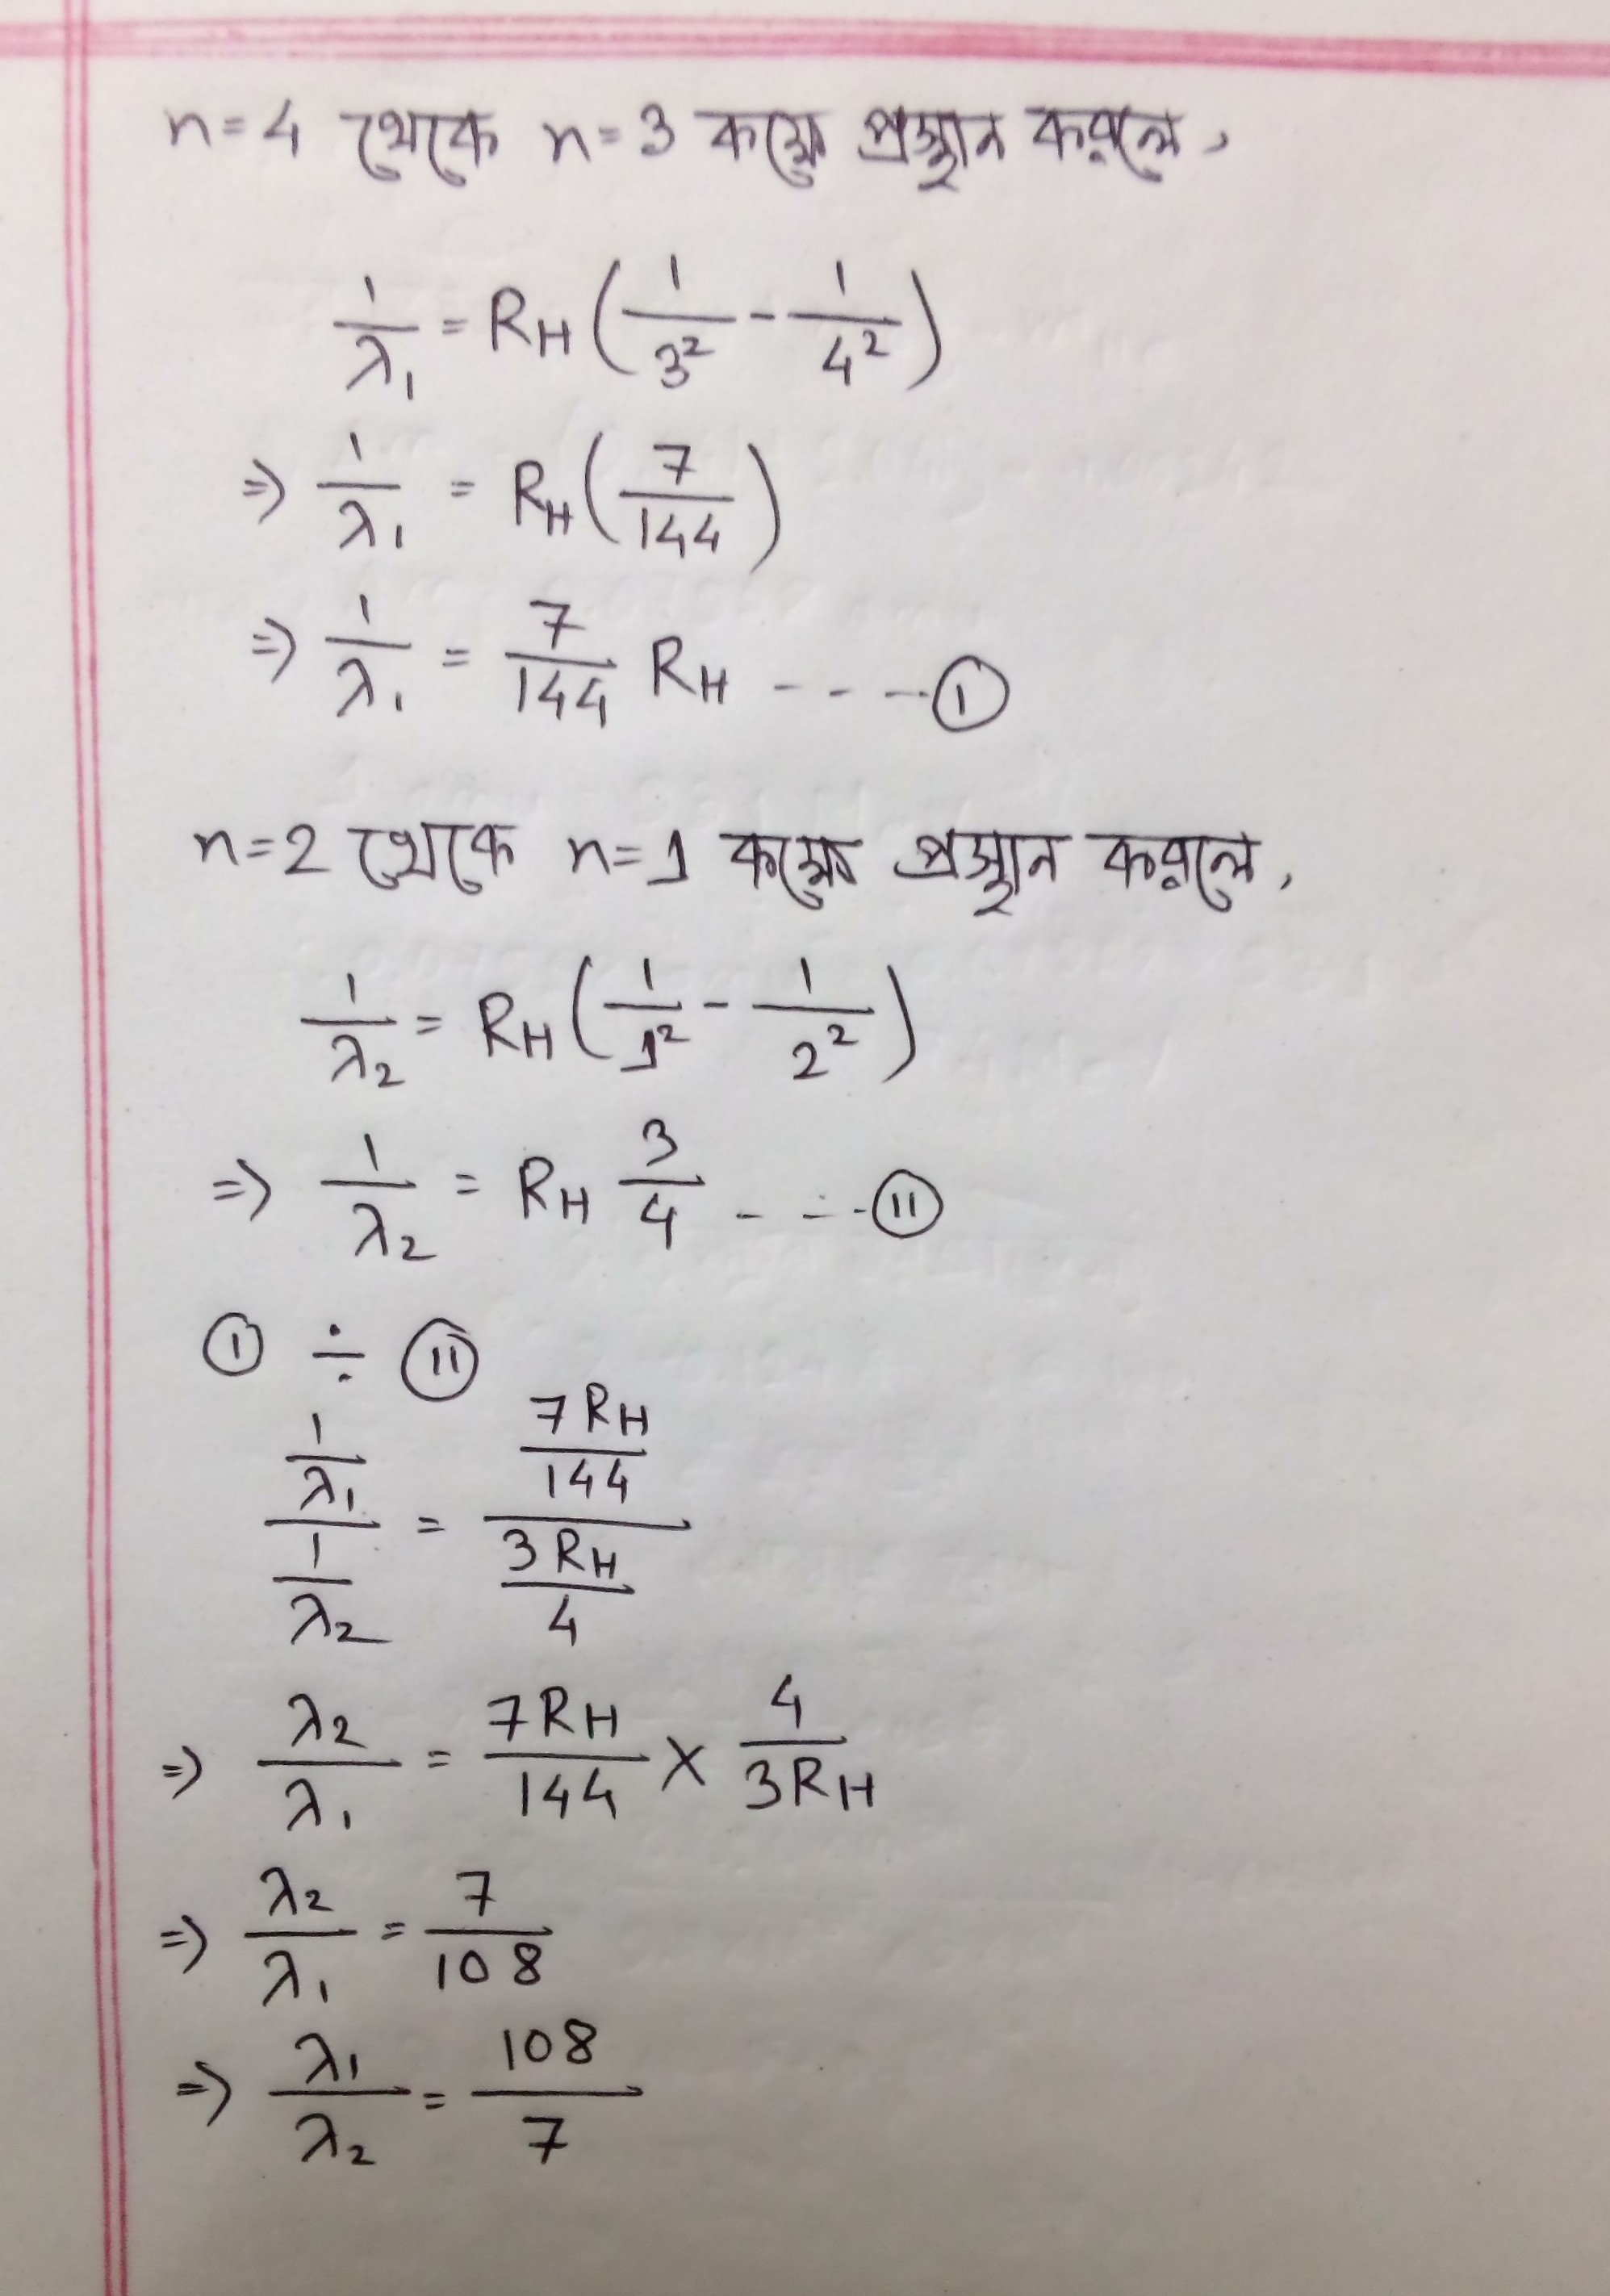 n=4 থেকে n=3 কক্ষে প্রস্থান করলে,
1/λ₁ = R_H (1/3² - 1/4²)
⇒ 1/λ₁ = R_H (7/144)
⇒ 1/λ₁ = 7/144 R_H ---- ①
n=2 থেকে n=1 কক্ষে প্রস্থান করলে,
1/λ₂ = R_H (1/1² - 1/2²)
⇒ 1/λ₂ = R_H 3/4 --- ⑪
① ÷ ⑪
(1/λ₁)/(1/λ₂) = (7R_H/144)/(3R_H/4)
⇒ λ₂/λ₁ = 7R_H/144 × 4/3R_H
⇒ λ₂/λ₁ = 7/108
⇒ λ₁/λ₂ = 108/7